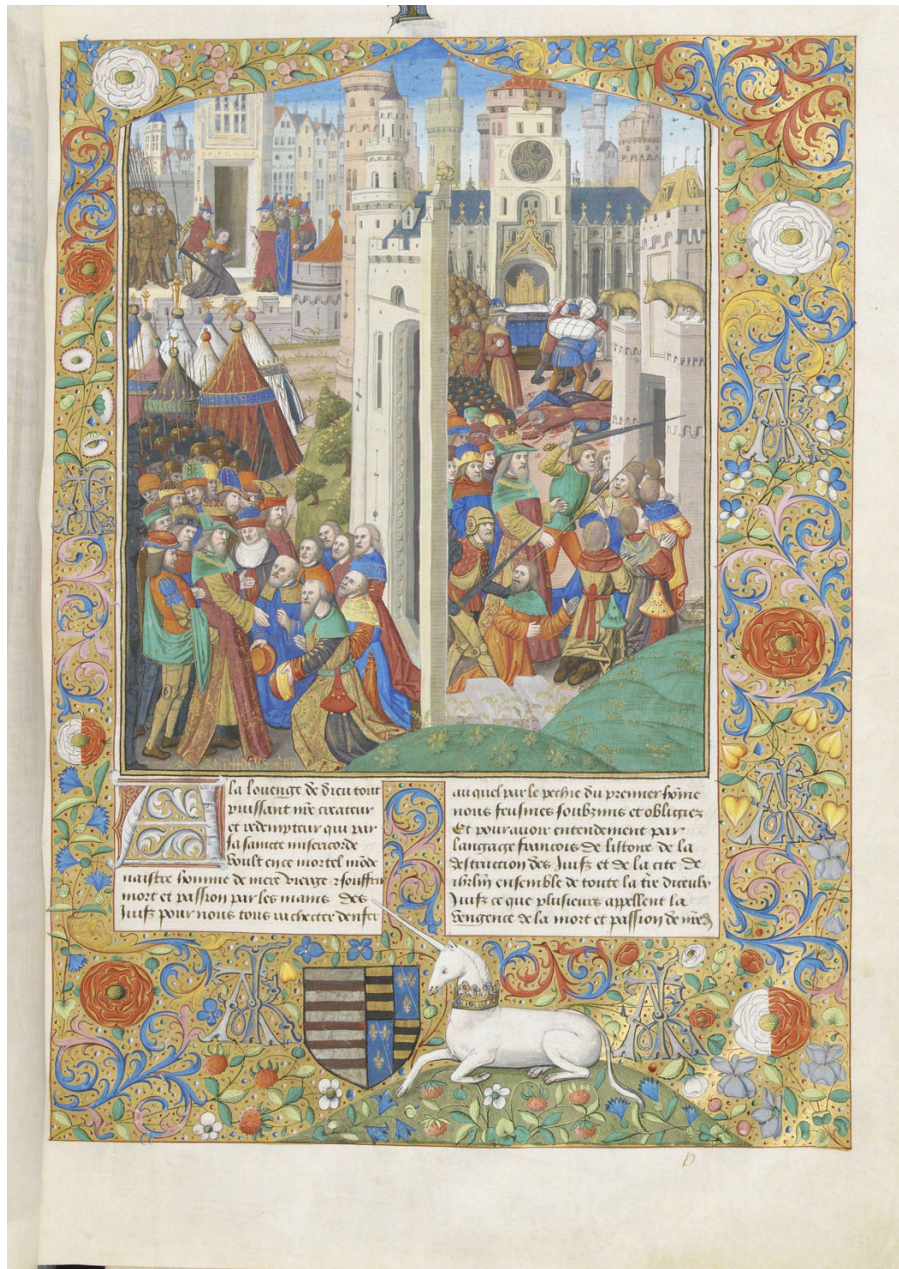 ANTHIOCUS
A la louenge de dieu tout
puissant nre createur
et redempteur qui par
sa saincte misericorde
voult en ce mortel mōde
naistre homme de mere vierge & souffrir
mort et passion par les mains des
Juifz pour nous tous rachecter denfer
au quel par le pechie du premier hōme
nous feusmes soubzmis et obligiez
Et pour avoir entendement par
langaige francois de listoire de la
destruction des Juifz et de la cite de
ihrlm ensemble de toute la tre diceulx
Juifz ce que plusieurs appellent la
vengence de la mort et passion de nre